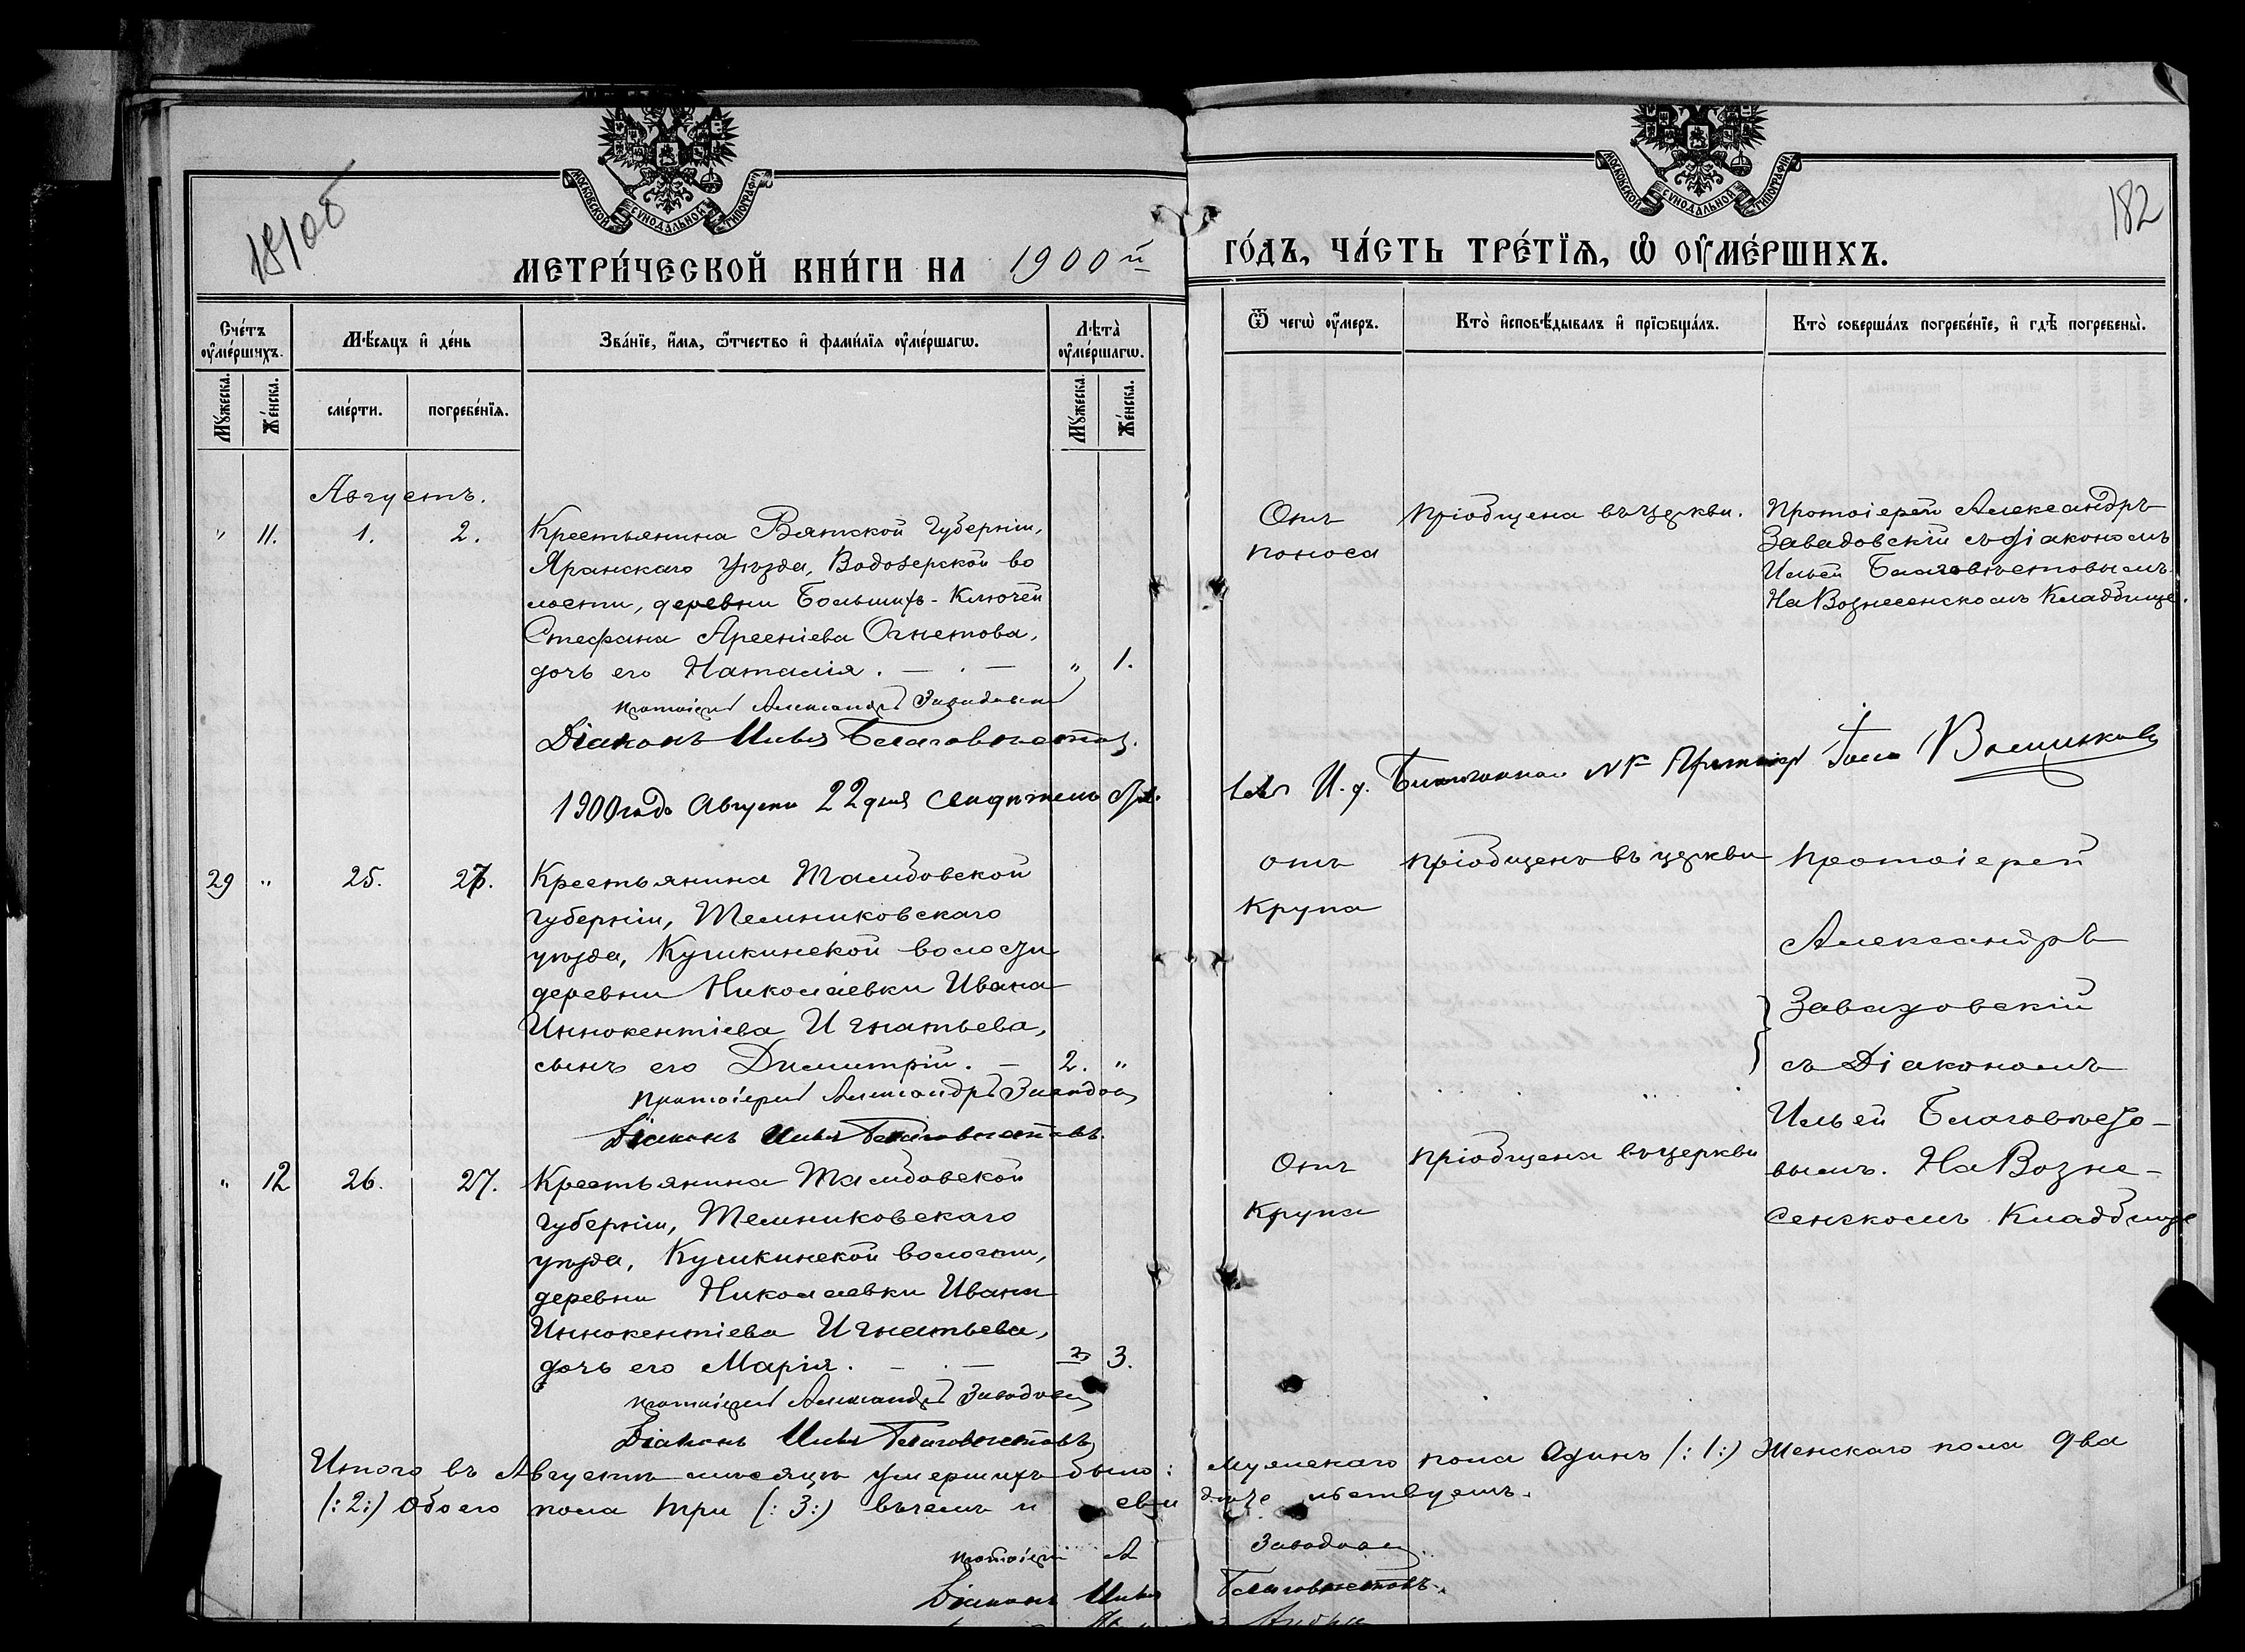 181об
182
МОСКОВСКОЙ СѴНОДАЛЬНОЙ ТИПОГРАФІИ
МОСКОВСКОЙ СѴНОДАЛЬНОЙ ТИПОГРАФІИ
МЕТРИ́ЧЕСКОЙ КНИ́ГИ НА 1900й ГО́ДЪ, ЧА́СТЬ ТРЕ́ТЇѦ, Ѡ҆ ОУ҆МЕ́РШИХЪ.
Сче́тъ оу҆ме́ршихъ.
Мѣ́сяцъ и҆ де́нь
Зва́нїе, и҆́мя, ѻ҆́тчество и҆ фами́лїя оу҆ме́ршагѡ.
Лѣ́та оу҆ме́ршагѡ.
Ѿ чегѡ̀ оу҆́меръ.
Кто̀ и҆сповѣ́дывалъ и҆ прїѡбща́лъ.
Кто̀ соверша́лъ погребе́нїе, и҆ гдѣ̀ погребены̀.
Мꙋ́жеска.
Же́нска.
сме́рти.
погребе́нїя.
Мꙋ́жеска.
Же́нска.
Августъ.
" 11. 1. 2.
Крестьянина Вятской Губерніи,
Яранскаго Уѣзда, Водозерской во
лости, деревни Большихъ-Ключей
Стефана Арсеніева Огнетова,
дочь его Наталія. — . — " 1.
Отъ
поноса
Пріобщена въ церкви.
Протоіерей Александръ
Завадовскій съ діакономъ
Ильей Благовѣстовымъ.
На Вознесенскомъ Кладбище.
Протоіерей Александръ Завадовскій
Діаконъ Илья Благовѣстовъ.
1900 года Августа 22 дня Свидѣтельство
И. д. Благочиннаго Протоіерей
29 " 25. 27.
Крестьянина Тамбовской
губерніи, Темниковскаго
уѣзда, Кушкинской волости
деревни Николаевки Ивана
Иннокентіева Игнатьева,
сынъ его Димитрій. — 2. "
отъ
крупа
пріобщенъ въ церкви
Протоіерей
Александръ
Завадовскій
съ Діакономъ
Ильей Благовѣсто-
вымъ. На Возне-
сенскомъ Кладбище
Протоіерей Александръ Завадов
Діаконъ Илья Благовѣстовъ.
" 12 26. 27.
Крестьянина Тамбовской
губерніи, Темниковскаго
уѣзда, Кушкинской волости,
деревни Николаевки Ивана
Иннокентіева Игнатьева,
дочь его Марія. — . — " 3.
Отъ
Крупа
Пріобщена въ церкви
Протоіерей Александръ Завадов
Діаконъ Илья Благовѣстовъ
Итого въ Августѣ мѣсяцѣ умершихъ было: Мужескаго пола Одинъ (:1:) Женскаго пола два
(:2:) Обоего пола три (:3:) въ чемъ и сви дѣтельствуемъ.
Протоіерей А Завадов
Діаконъ Илья Благовѣстовъ.